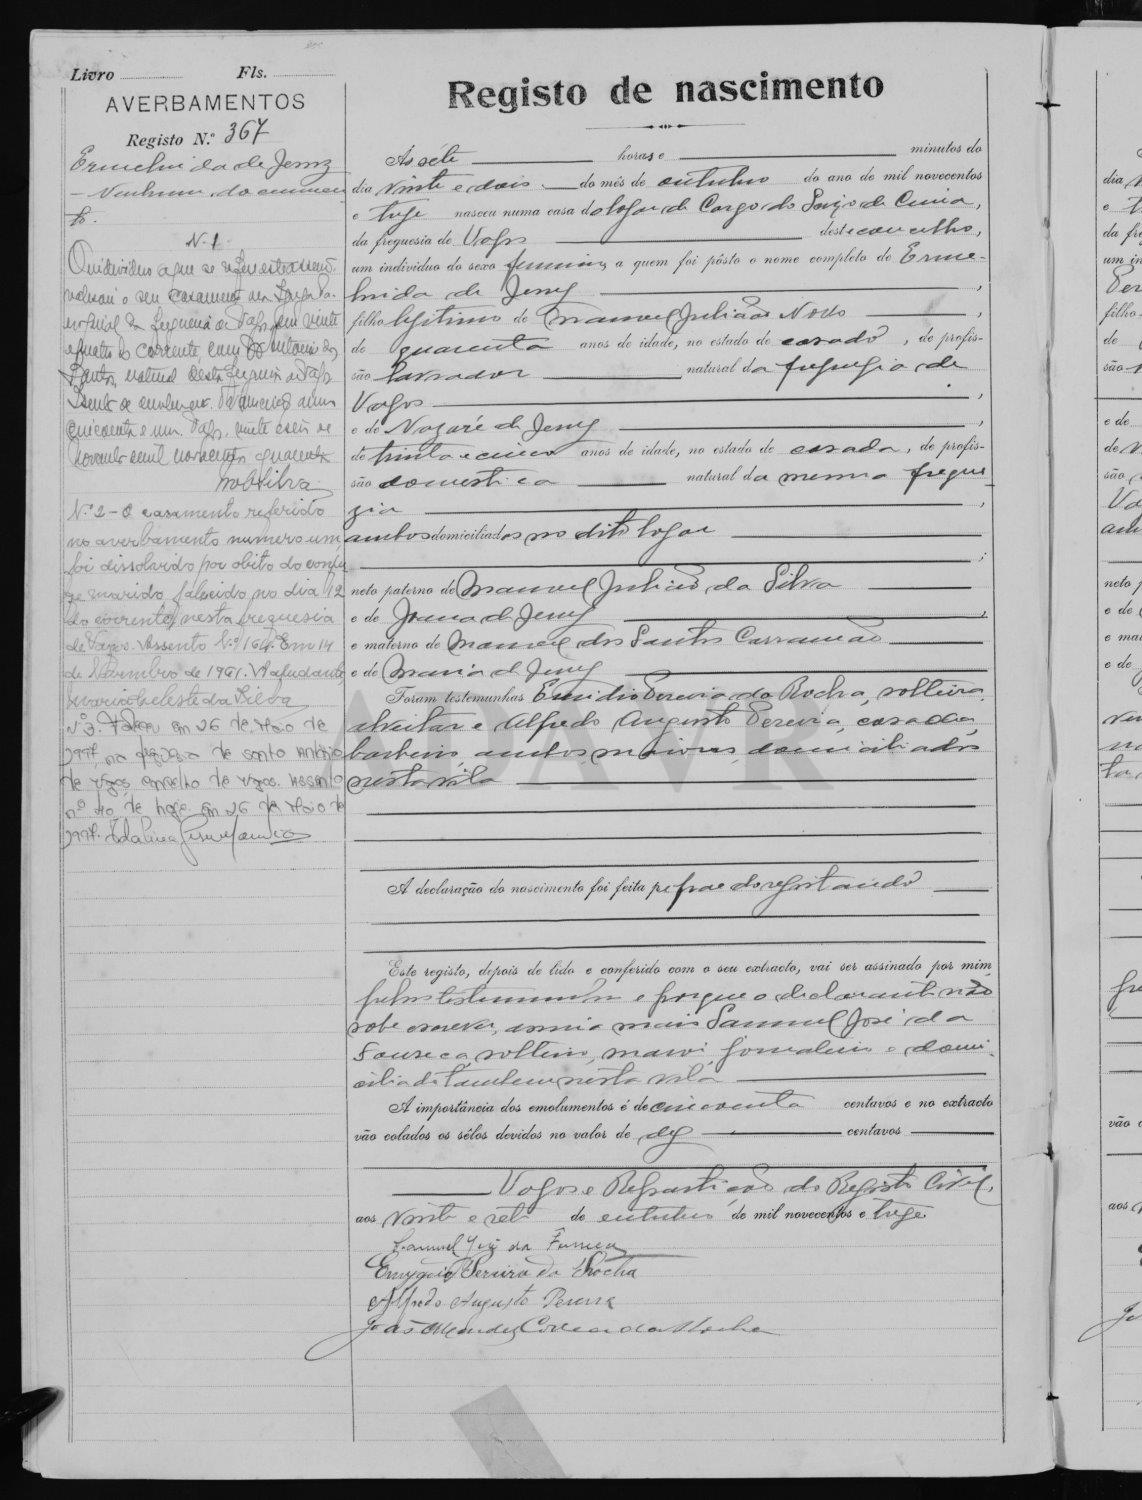 Livro Fls.
AVERBAMENTOS
Registo N.º 367
Ermelinda de Jesus
– Nenhum documen
to.
N.1
O individuo a que se refere este assento
realizou o seu casamento na Igreja Pa-
roquial da freguesia de Vagos em vinte
e quatro do corrente, com António dos
Santos, natural desta freguesia de Vagos
cincoenta e um. Vagos, vinte e seis de
Novembro de mil novecentos quarenta
Silva
N.º 2 – O casamento referido
no averbamento numero um
foi dissolvido por obito do conju
ge marido, falecido no dia 12
do corrente, nesta freguesia
de Vagos. Assento N.º 164. Em 14
de Novembro de 1961. A ajudante,
Maria Celeste da Silva
N.º 3. Faleceu em 26 de Maio de
1997, na freguesia de Santo António
de Vagos, concelho de Vagos. Assento
n.º 40, de hoje. Em 26 de Maio de
1997.
Registo de nascimento
As sete horas e minutos do
dia vinte e dois do mês de outubro do ano de mil novecentos
e treze nasceu numa casa do logar de
da freguesia de Vagos deste concelho,
um individuo do sexo feminino a quem foi pôsto o nome completo de Erme-
linda de Jesus ,
filha legitima de Manuel Julião Novo ,
de quarenta anos de idade, no estado de casado , de profis-
são lavrador natural da freguezia de
Vagos ,
e de Nazaré de Jesus ,
de trinta e cinco anos de idade, no estado de casada , de profis-
são domestica natural da mesma fregue
zia ,
ambos domiciliados no dito logar
;
neto paterno de Manuel Julião da Silva
e de Joana de Jesus ,
e materno de Manuel dos Santos Carramão
e de Maria de Jesus
Foram testemunhas Emidio Pereira da Rocha, solteiro,
alveitar e Alfredo Augusto Pereira, casado,
barbeiro, ambos maiores, domiciliados
nesta vila
A declaração do nascimento foi feita pelo pae do registando
Este registo, depois de lido e conferido com o seu extracto, vai ser assinado por mim,
pelas testemunhas e porque o declarante não
sabe escrever, assina mais Samuel José da
Fonseca, solteiro, maior, jornaleiro e domi-
ciliado tambem nesta vila
A importância dos emolumentos é de cincoenta centavos e no extracto
vão colados os sêlos devidos no valor de dez centavos
Vagos e Repartição do Registo Civil,
aos vinte e sete de outubro de mil novecentos e treze
Samuel José da Fonseca
Emygdio Pereira da Rocha
Alfredo Augusto Pereira
João Mendes Correia da Rocha
AVR